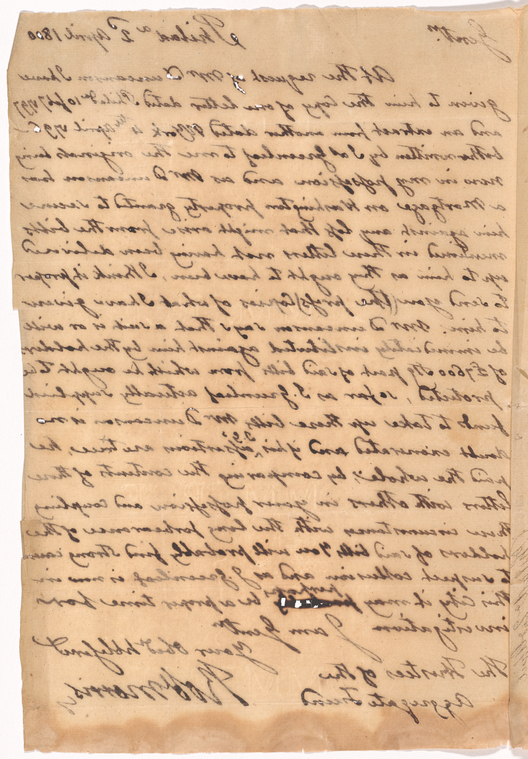 Philada 2 April 1800
Gentn
At the request of Mr Duncanson I have
given to him the Copy of one letter dated Philad 10 feb 1797
and an extract from another dated N York 4 April 1796
both written by Js Greenleaf to me the originals being
now in my possession and as Mr Duncanson has
a Mortgage on Washington property granted to secure
him against any loss that might arise from the bills
mentioned in these letters not having been delivered
up to him as they ought to have been, I think it proper
to send you (the Copies of what I have given
to him. Mr Duncanson says that a suit is or will
be immediately instituted against him by the holders
of £7600 Stg part of said bills from which he ought to be
protected, so far as J Greenleaf actually supplied
funds to take up these bills, Mr Duncanson is no
doubt exonerated and if his assertions are true, he
paid the whole; by comparing the contents of those
letters with others in your possession and coupling
these circumstances with the long forbearance of the
holders of said bills You will probably find strong cause
to suspect collusion and as J Greenleaf is now in
this City it may be a proper time for
investigation
I am Gentn
Your Obedt hble Servt
Robt Morris
The Trustees of the
Aggregate Fund